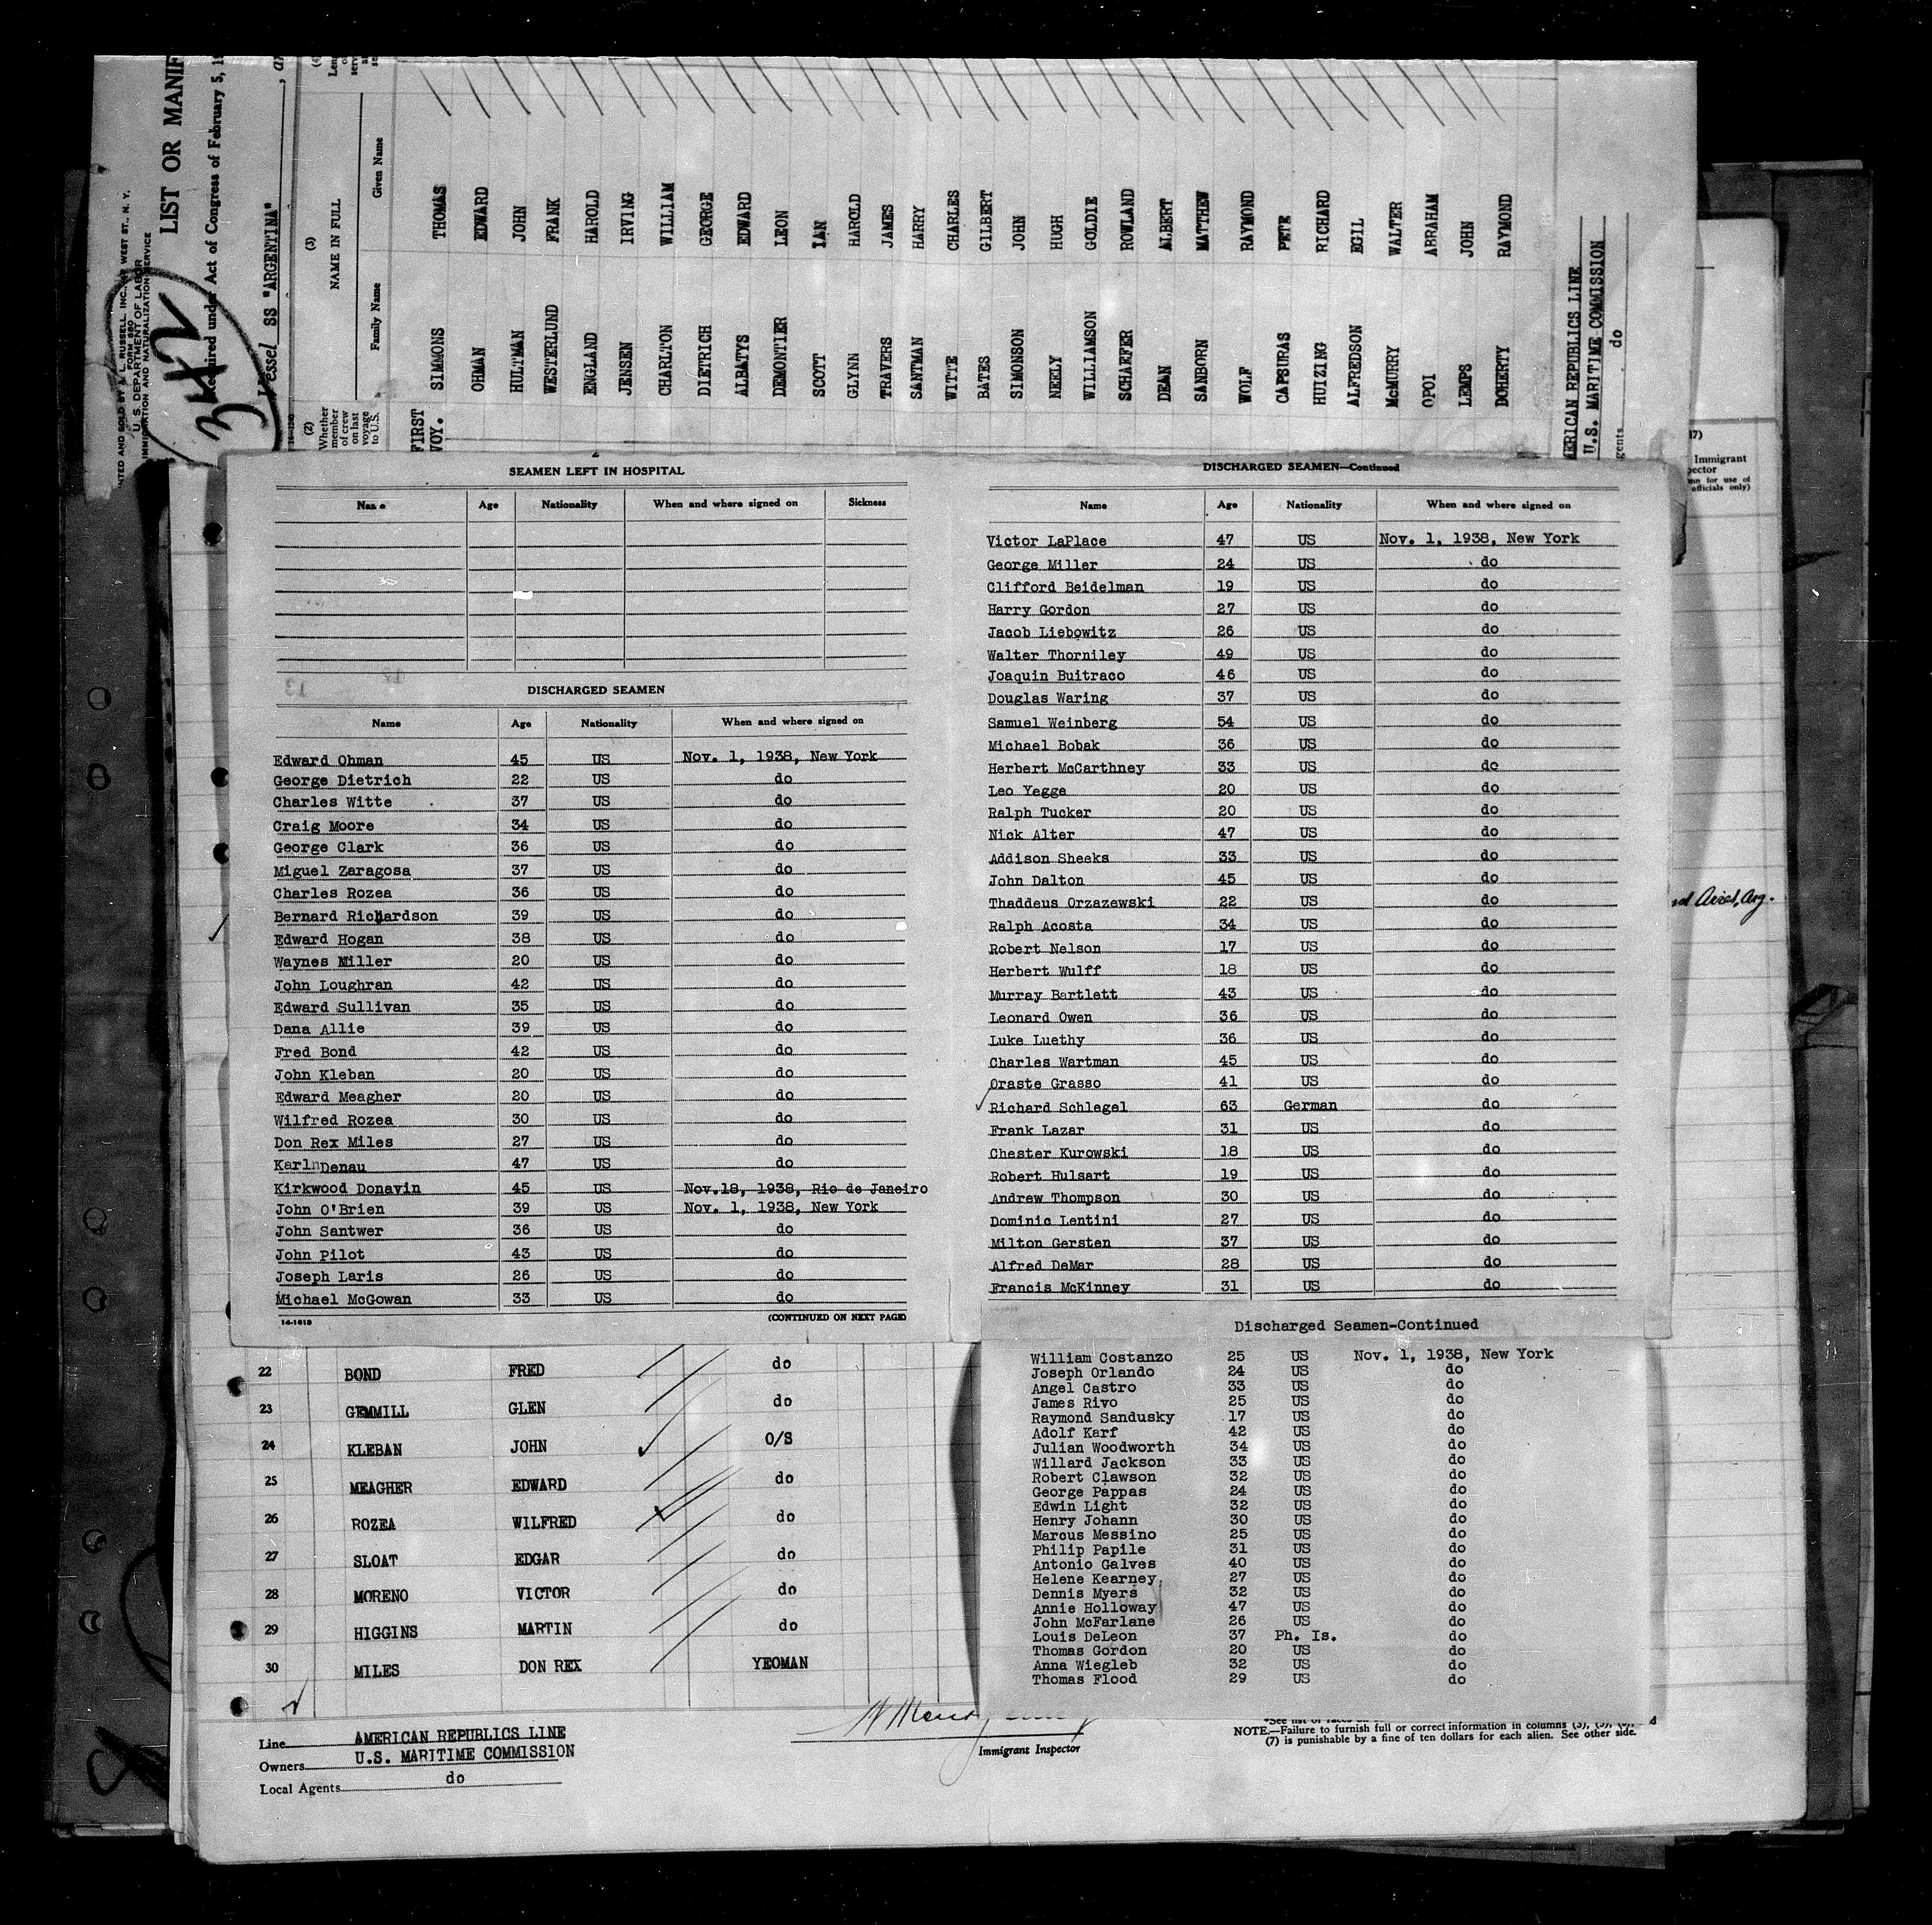 NTED AND SOLD BY A. L. RUSSELL, INC., WEST ST., N. Y.
FORM 680
U. S. DEPARTMENT OF LABOR
IMMIGRATION AND NATURALIZATION SERVICE
LIST OR MANIF
Required under Act of Congress of February 5, 19
342
Vessel SS "ARGENTINA"
(2)
Whether member of crew on last voyage to U.S.
(3)
NAME IN FULL
Family Name Given Name
FIRST VOY.
SIMMONS THOMAS
OHMAN EDWARD
HULTMAN JOHN
WESTERLUND FRANK
ENGLAND HAROLD
JENSEN IRVING
CHARLTON WILLIAM
DIETRICH GEORGE
ALBATYS EDWARD
DEMONTIER LEON
SCOTT IAN
GLYNN HAROLD
TRAVERS JAMES
SANTMAN HARRY
WITTE CHARLES
BATES GILBERT
SIMONSON JOHN
NEELY HUGH
WILLIAMSON GOLDIE
SCHAEFER ROWLAND
DEAN ALBERT
SANBORN MATTHEW
WOLF RAYMOND
CAPSURAS PETE
HUIZING RICHARD
ALFREDSON EGIL
McMURRY WALTER
OPOI ABRAHAM
LEMPS JOHN
DOHERTY RAYMOND
MERICAN REPUBLICS LINE
U.S. MARITIME COMMISSION
gents do
17)
Immigrant
pector
mn for use of
officials only)
SEAMEN LEFT IN HOSPITAL
Name Age Nationality When and where signed on Sickness
DISCHARGED SEAMEN
Name Age Nationality When and where signed on
Edward Ohman 45 US Nov. 1, 1938, New York
George Dietrich 22 US do
Charles Witte 37 US do
Craig Moore 34 US do
George Clark 36 US do
Miguel Zaragosa 37 US do
Charles Rozea 36 US do
Bernard Richardson 39 US do
Edward Hogan 38 US do
Waynes Miller 20 US do
John Loughran 42 US do
Edward Sullivan 35 US do
Dana Allie 39 US do
Fred Bond 42 US do
John Kleban 20 US do
Edward Meagher 20 US do
Wilfred Rozea 30 US do
Don Rex Miles 27 US do
Karl Denau 47 US do
Kirkwood Donavin 45 US Nov.18, 1938, Rio de Janeiro
John O'Brien 39 US Nov. 1, 1938, New York
John Santwer 36 US do
John Pilot 43 US do
Joseph Laris 26 US do
Michael McGowan 33 US do
14-1618 (CONTINUED ON NEXT PAGE)
DISCHARGED SEAMEN—Continued
Name Age Nationality When and where signed on
Victor LaPlace 47 US Nov. 1, 1938, New York
George Miller 24 US do
Clifford Beidelman 19 US do
Harry Gordon 27 US do
Jacob Liebowitz 26 US do
Walter Thorniley 49 US do
Joaquin Buitraco 46 US do
Douglas Waring 37 US do
Samuel Weinberg 54 US do
Michael Bobak 36 US do
Herbert McCarthney 33 US do
Leo Yegge 20 US do
Ralph Tucker 20 US do
Nick Alter 47 US do
Addison Sheeks 33 US do
John Dalton 45 US do
Thaddeus Orzazewski 22 US do
Ralph Acosta 34 US do
Robert Nelson 17 US do
Herbert Wulff 18 US do
Murray Bartlett 43 US do
Leonard Owen 36 US do
Luke Luethy 36 US do
Charles Wartman 45 US do
Oraste Grasso 41 US do
Richard Schlegel 63 German do
Frank Lazar 31 US do
Chester Kurowski 18 US do
Robert Hulsart 19 US do
Andrew Thompson 30 US do
Dominic Lentini 27 US do
Milton Gersten 37 US do
Alfred DeMar 28 US do
Francis McKinney 31 US do
Discharged Seamen-Continued
William Costanzo 25 US Nov. 1, 1938, New York
Joseph Orlando 24 US do
Angel Castro 33 US do
James Rivo 25 US do
Raymond Sandusky 17 US do
Adolf Karf 42 US do
Julian Woodworth 34 US do
Willard Jackson 33 US do
Robert Clawson 32 US do
George Pappas 24 US do
Edwin Light 32 US do
Henry Johann 30 US do
Marcus Messino 25 US do
Philip Papile 31 US do
Antonio Galves 40 US do
Helene Kearney 27 US do
Dennis Myers 32 US do
Annie Holloway 47 US do
John McFarlane 26 US do
Louis DeLeon 37 Ph. Is. do
Thomas Gordon 20 US do
Anna Wiegleb 32 US do
Thomas Flood 29 US do
Aires, Arg.
22 BOND FRED do
23 GEMMILL GLEN do
24 KLEBAN JOHN O/S
25 MEAGHER EDWARD do
26 ROZEA WILFRED do
27 SLOAT EDGAR do
28 MORENO VICTOR do
29 HIGGINS MARTIN do
30 MILES DON REX YEOMAN
Line AMERICAN REPUBLICS LINE
Owners U.S. MARITIME COMMISSION
Local Agents do
Immigrant Inspector
NOTE.—Failure to furnish full or correct information in columns (3), (5),
(7) is punishable by a fine of ten dollars for each alien. See other side.